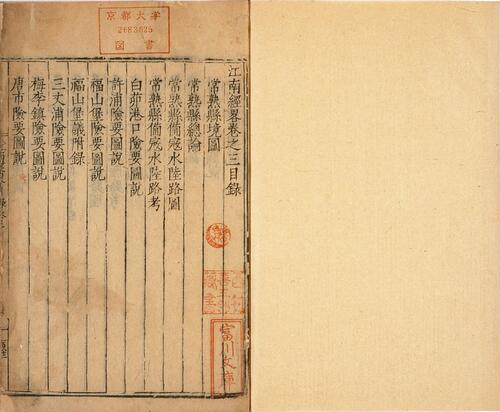 京都大学
2683625
図書
江南經畧卷之三目錄
常熟縣境圖
常熟縣總論
常熟縣備寇水陸路圖
常熟縣備寇水陸路考
白茆港口險要圖說
許浦險要圖說
福山堡險要圖說
福山堡議附錄
三丈浦險要圖說
梅李鎮險要圖說
唐市險要圖說
富川文庫